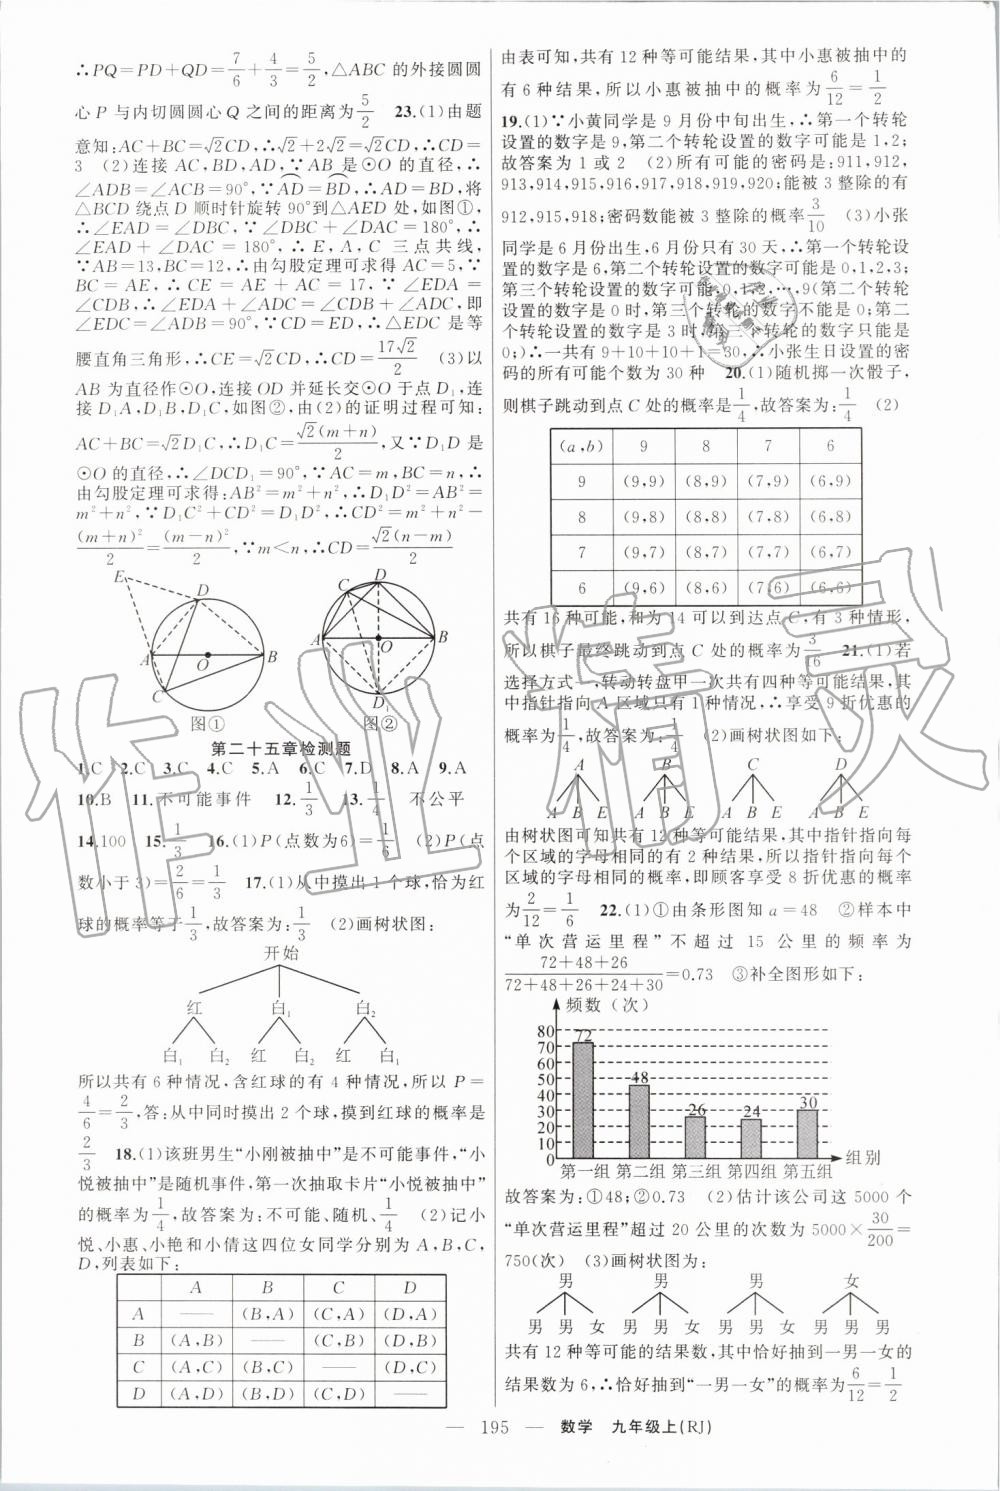 ∴PQ=PD+QD=7/6+4/3=5/2,△ABC 的外接圆圆
心 P 与内切圆圆心 Q 之间的距离为 5/2　23.(1)由题
意知:AC+BC=√2CD,∴√2+2√2=√2CD,∴CD=
3　(2)连接 AC,BD,AD,∵AB 是⊙O 的直径,∴
∠ADB=∠ACB=90°,∵AD=BD,∴AD=BD,将
△BCD 绕点 D 顺时针旋转 90°到△AED 处,如图①,
∴∠EAD=∠DBC,∵∠DBC+∠DAC=180°,∴
∠EAD+∠DAC=180°,∴E,A,C 三点共线,
∵AB=13,BC=12,∴由勾股定理可求得 AC=5,∵
BC=AE,∴CE=AE+AC=17,∵∠EDA=
∠CDB,∴∠EDA+∠ADC=∠CDB+∠ADC,即
∠EDC=∠ADB=90°,∵CD=ED,∴△EDC 是等
腰直角三角形,∴CE=√2CD,∴CD=17√2/2　(3)以
AB 为直径作⊙O,连接 OD 并延长交⊙O 于点 D₁,连
接 D₁A,D₁B,D₁C,如图②,由(2)的证明过程可知:
AC+BC=√2D₁C,∴D₁C=√2(m+n)/2,又∵D₁D 是
⊙O 的直径,∴∠DCD₁=90°,∵AC=m,BC=n,∴
由勾股定理可求得:AB²=m²+n²,∴D₁D²=AB²=
m²+n²,∵D₁C²+CD²=D₁D²,∴CD²=m²+n²-
(m+n)²/2=(m-n)²/2,∵m<n,∴CD=√2(n-m)/2
E D A O B C
图①
D C A O B D₁
图②
第二十五章检测题
1.C　2.C　3.C　4.C　5.A　6.C　7.D　8.A　9.A
10.B　11.不可能事件　12.1/3　13.1/4　不公平
14.100　15.1/3　16.(1)P(点数为6)=1/6　(2)P(点
数小于3)=2/6=1/3　17.(1)从中摸出 1 个球,恰为红
球的概率等于1/3,故答案为:1/3　(2)画树状图:
开始
红　白₁　白₂
白₁　白₂　红　白₂　红　白₁
所以共有 6 种情况,含红球的有 4 种情况,所以 P=
4/6=2/3,答:从中同时摸出 2 个球,摸到红球的概率是
2/3　18.(1)该班男生“小刚被抽中”是不可能事件,“小
悦被抽中”是随机事件,第一次抽取卡片“小悦被抽中”
的概率为1/4,故答案为:不可能、随机、1/4　(2)记小
悦、小惠、小艳和小倩这四位女同学分别为 A,B,C,
D,列表如下:
A　B　C　D
A　——　(B,A)　(C,A)　(D,A)
B　(A,B)　——　(C,B)　(D,B)
C　(A,C)　(B,C)　——　(D,C)
D　(A,D)　(B,D)　(C,D)　——
由表可知,共有 12 种等可能结果,其中小惠被抽中的
有 6 种结果,所以小惠被抽中的概率为6/12=1/2
19.(1)∵小黄同学是 9 月份中旬出生,∴第一个转轮
设置的数字是 9,第二个转轮设置的数字可能是 1,2;
故答案为 1 或 2　(2)所有可能的密码是:911,912,
913,914,915,916,917,918,919,920;能被 3 整除的有
912,915,918;密码数能被 3 整除的概率3/10　(3)小张
同学是 6 月份出生,6 月份只有 30 天,∴第一个转轮设
置的数字是 6,第二个转轮设置的数字可能是 0,1,2,3;
第三个转轮设置的数字可能是 0,1,2,…,9(第二个转轮
设置的数字是 0 时,第三个转轮的数字不能是 0;第二
个转轮设置的数字是 3 时,第三个转轮的数字只能是
0;)∴一共有 9+10+10+1=30,∴小张生日设置的密
码的所有可能个数为 30 种　20.(1)随机掷一次骰子,
则棋子跳动到点 C 处的概率是1/4,故答案为:1/4　(2)
(a,b)　9　8　7　6
9　(9,9)　(8,9)　(7,9)　(6,9)
8　(9,8)　(8,8)　(7,8)　(6,8)
7　(9,7)　(8,7)　(7,7)　(6,7)
6　(9,6)　(8,6)　(7,6)　(6,6)
共有 16 种可能,和为 14 可以到达点 C,有 3 种情形,
所以棋子最终跳动到点 C 处的概率为3/16　21.(1)若
选择方式一,转动转盘甲一次共有四种等可能结果,其
中指针指向 A 区域只有 1 种情况,∴享受 9 折优惠的
概率为1/4,故答案为:1/4　(2)画树状图如下:
A　B　C　D
A　B　E　A　B　E　A　B　E　A　B　E
由树状图可知共有 12 种等可能结果,其中指针指向每
个区域的字母相同的有 2 种结果,所以指针指向每个
区域的字母相同的概率,即顾客享受 8 折优惠的概率
为2/12=1/6　22.(1)①由条形图知 a=48　②样本中
“单次营运里程”不超过 15 公里的频率为
(72+48+26)/(72+48+26+24+30)=0.73　③补全图形如下:
频数(次)
80
70
60
50
40
30
20
10
0
72　48　26　24　30
第一组　第二组　第三组　第四组　第五组　组别
故答案为:①48;②0.73　(2)估计该公司这 5000 个
“单次营运里程”超过 20 公里的次数为 5000×30/200=
750(次)　(3)画树状图为:
男　男　男　女
男　男　女　男　男　女　男　男　女　男　男　男
共有 12 种等可能的结果数,其中恰好抽到一男一女的
结果数为 6,∴恰好抽到“一男一女”的概率为6/12=1/2
— 195 —　数学　九年级上(RJ)
作业精灵